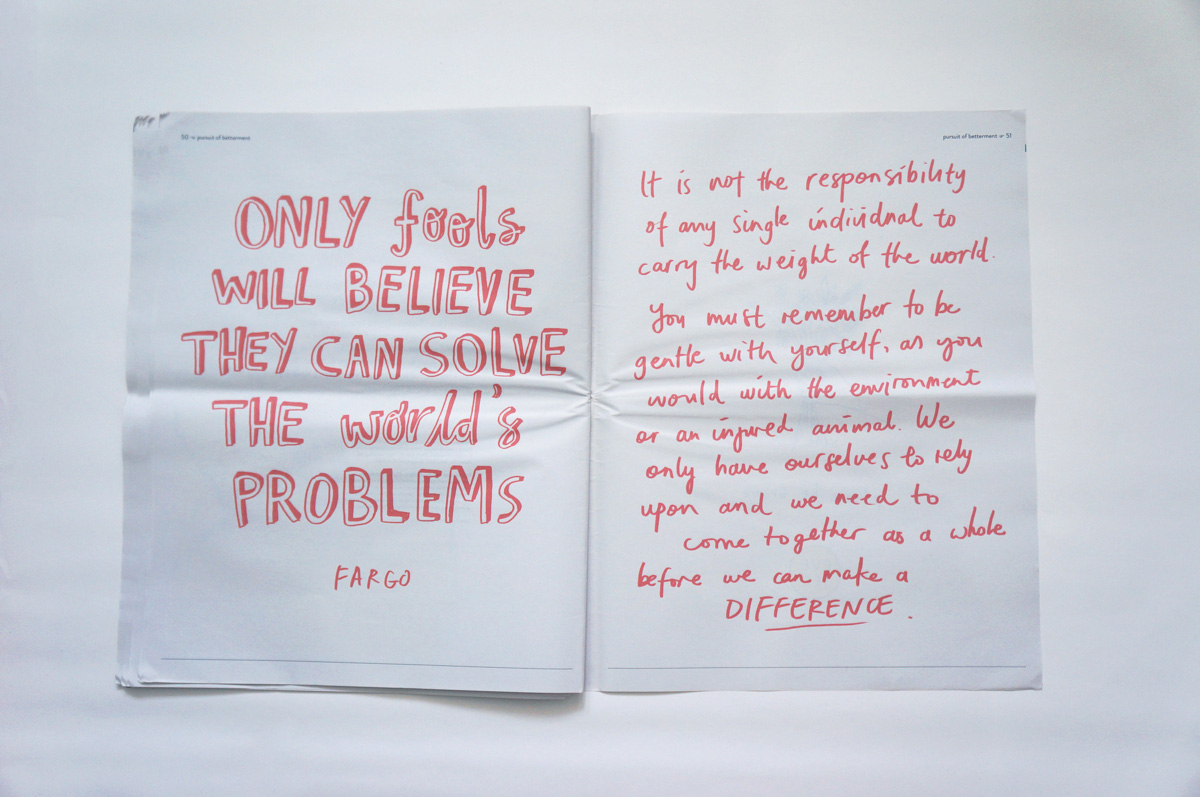 50 pursuit of betterment
ONLY fools
WILL BELIEVE
THEY CAN SOLVE
THE world's
PROBLEMS
FARGO
pursuit of betterment 51
It is not the responsibility
of any single individual to
carry the weight of the world.
You must remember to be
gentle with yourself, as you
would with the environment
or an injured animal. We
only have ourselves to rely
upon and we need to
come together as a whole
before we can make a
DIFFERENCE.